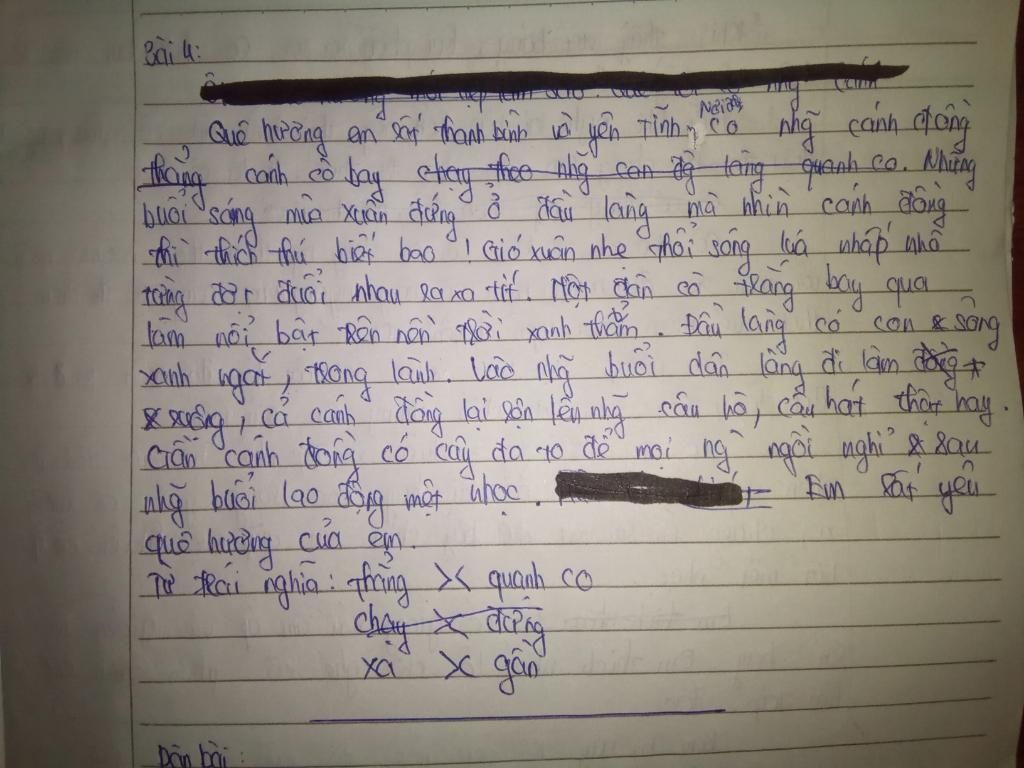 Bài 4:
Quê hương em rất thanh bình và yên tĩnh, Nơi đó có nhg̃ cánh đồng
thẳng cánh cò bay chạy theo nhg̃ con đg̀ làng quanh co. Những
buổi sáng mùa xuân đứng ở đầu làng mà nhìn cánh đồng
thì thích thú biết bao ! Gió xuân nhẹ thổi sóng lúa nhấp nhô
từng đợt đuổi nhau ra xa tít. Một đàn cò trắng bay qua
làm nổi bật trên nền trời xanh thẳm. Đầu làng có con sông
xanh ngắt, trong lành. Vào nhg̃ buổi dân làng đi làm đồng
xuống, cả cánh đồng lại rộn lên nhg̃ câu hò, câu hát thật hay.
Gần cánh đồng có cây đa to để mọi ng̀ ngồi nghỉ sau
nhg̃ buổi lao động mệt nhọc. Em rất yêu
quê hương của em.
Từ trái nghĩa: thẳng >< quanh co
chạy >< đứng
xa >< gần
Dàn bài :